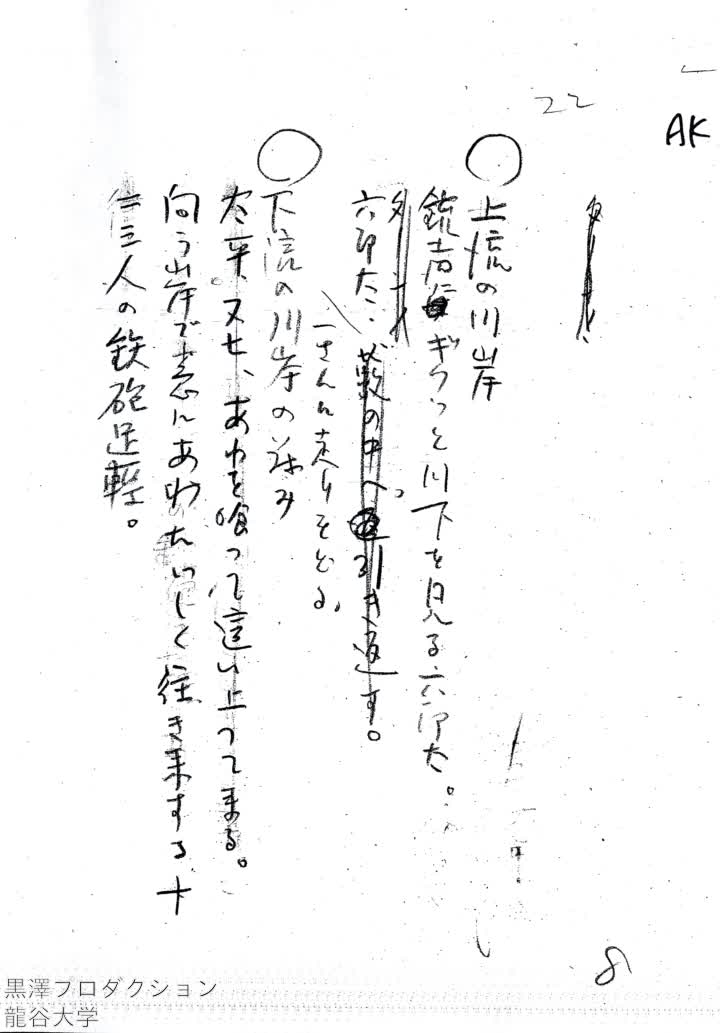 AK
22
○上流の川岸
銃声にギクッと川下を見る六郎太。
ターン
六郎太、藪の中へ引き返す。
一さんに走りもどる。
○下流の川岸の茂み
太平、又七、あわを喰って這い上って来る。
向う岸で急にあわただしく往き来する十
二三人の鉄砲足軽。
8
黒澤プロダクション
龍谷大学